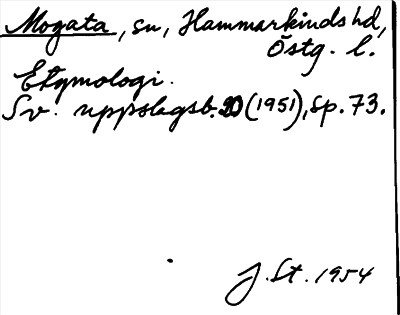 Mogata, sn, Hammarkinds hd,
Östg. l.
Etymologi.
Sv. uppslagsb. 20 (1951), sp. 73.
J. St. 1954